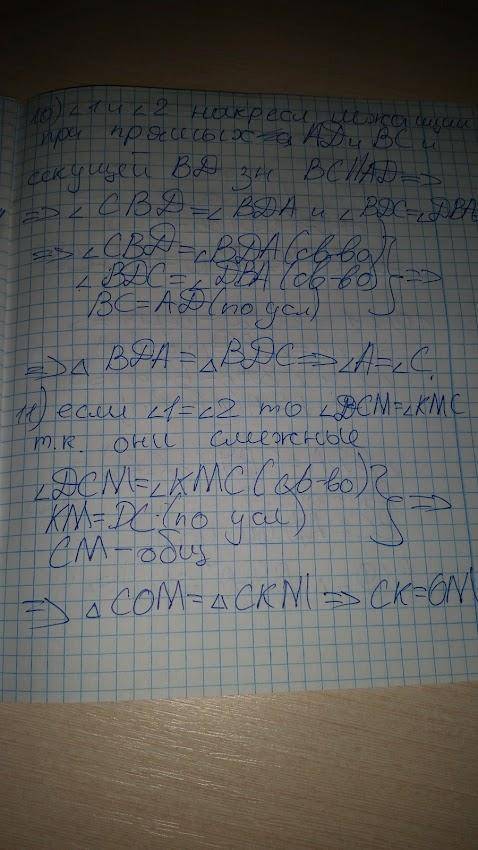 10) ∠1 и ∠2 накрест лежащии
при прямых a AD и BC и
секущей BD зн BC||AD =>
=> ∠CBD=∠BDA и ∠BDC=∠DBA
=> ∠CBD=∠BDA (св-во)
∠BDC=∠DBA (св-во) } =>
BC=AD (по усл)
=> △BDA=△BDC => ∠A=∠C.
11) если ∠1=∠2 то ∠DCM=∠KMC
т.к. они смежные
∠DCM=∠KMC (св-во)
KM=DC (по усл) } =>
CM-общ
=> △COM=△CKM => CK=